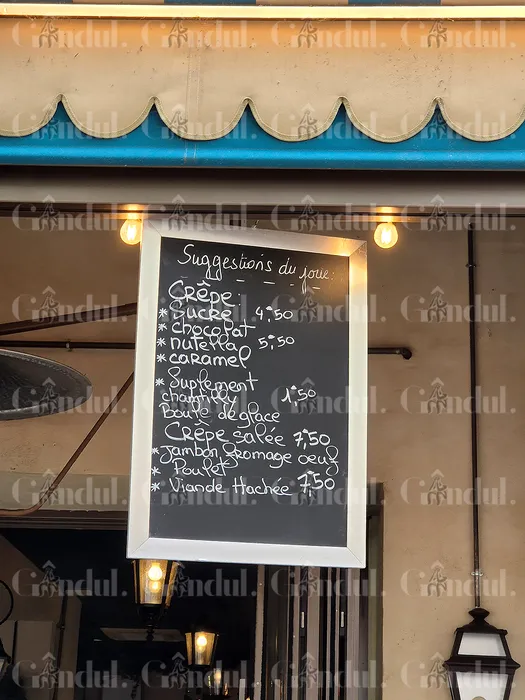 Suggestions du joue:
Crêpe:
* Sucré 4,50
* chocolat
* nutella 5,50
* caramel
* Suplement
chantilly 1,50
Boule de glace
Crêpe salée 7,50
* Jambon fromage oeuf
* Poulet
* Viande Hachée 7,50